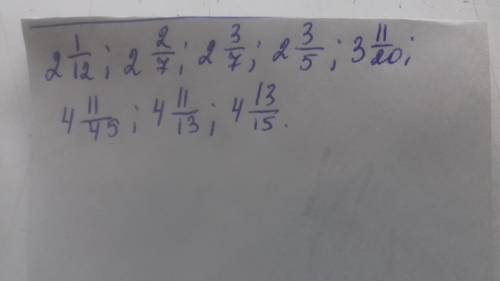 2 1/12; 2 2/7; 2 3/7; 2 3/5; 3 11/20;
4 11/45; 4 11/13; 4 13/15.